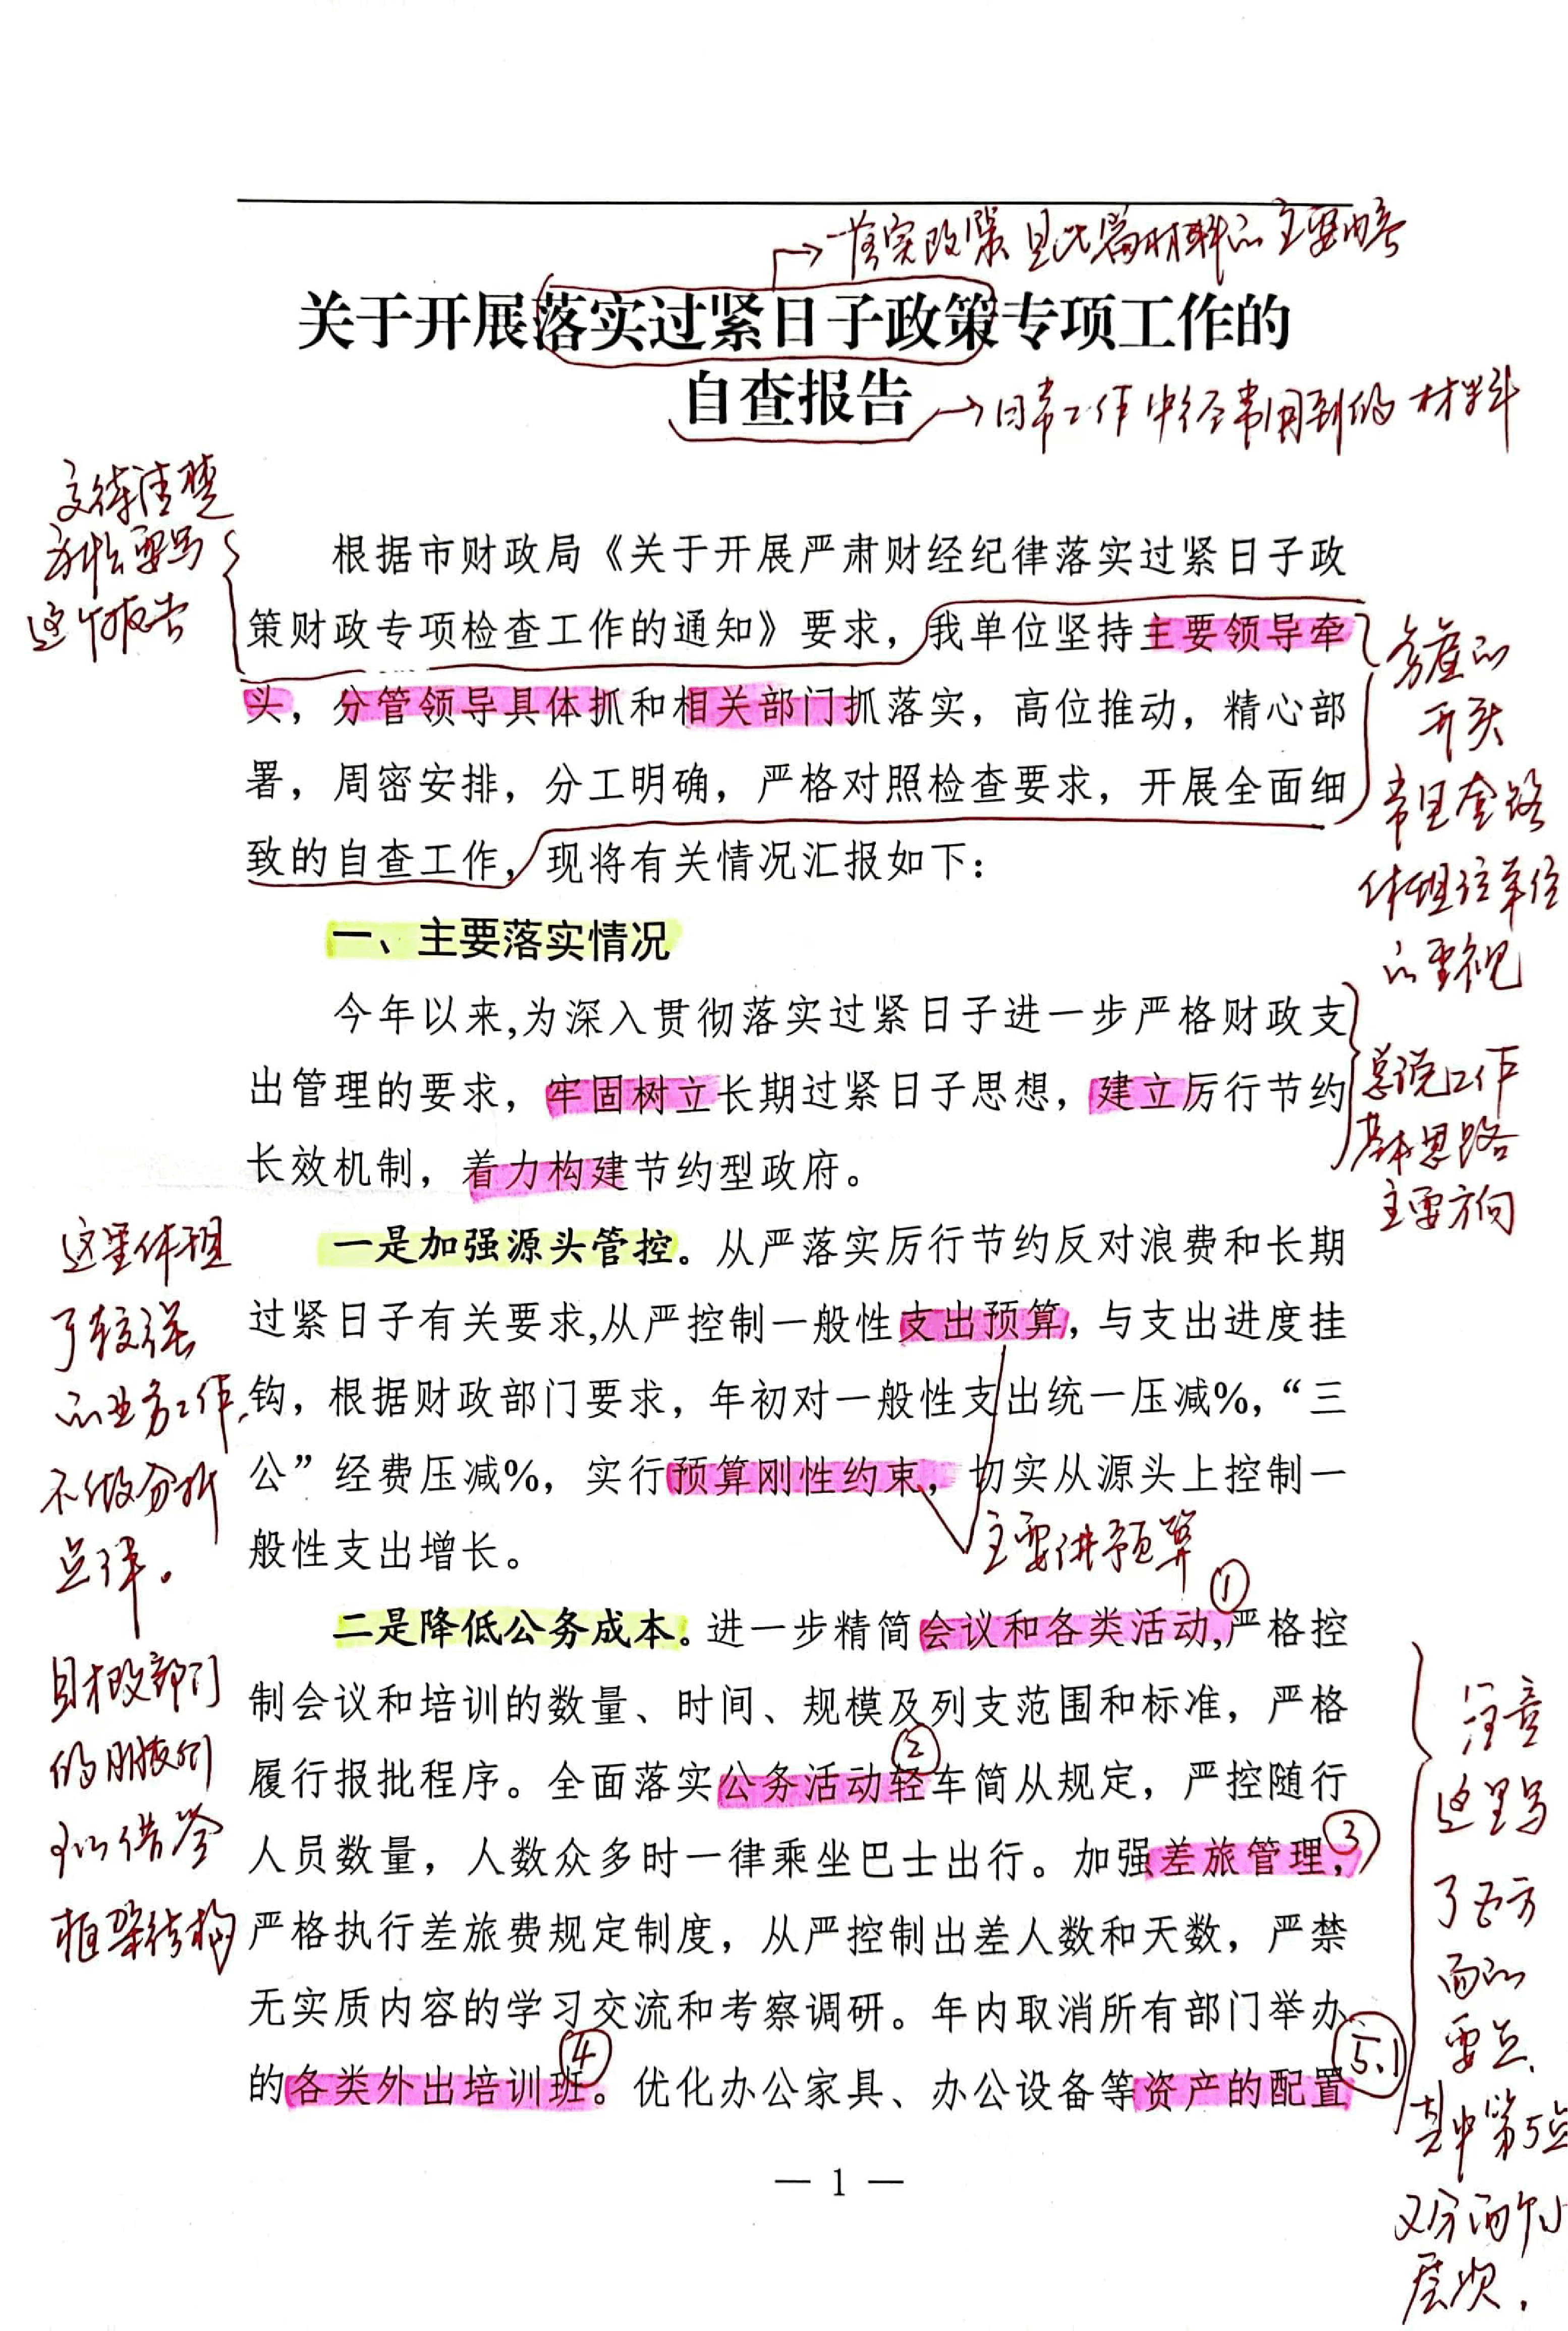 落实政策是此篇材料的主要内容
关于开展落实过紧日子政策专项工作的
自查报告
日常工作中经常用到的材料
交待清楚
为什么要写
这个报告
根据市财政局《关于开展严肃财经纪律落实过紧日子政
策财政专项检查工作的通知》要求，我单位坚持主要领导牵
头，分管领导具体抓和相关部门抓落实，高位推动，精心部
署，周密安排，分工明确，严格对照检查要求，开展全面细
致的自查工作，现将有关情况汇报如下：
自查的
开头
常见套路
体现该单位
的重视
一、主要落实情况
今年以来,为深入贯彻落实过紧日子进一步严格财政支
出管理的要求，牢固树立长期过紧日子思想，建立厉行节约
长效机制，着力构建节约型政府。
总说工作
基本思路
主要方向
一是加强源头管控。从严落实厉行节约反对浪费和长期
过紧日子有关要求,从严控制一般性支出预算，与支出进度挂
钩，根据财政部门要求，年初对一般性支出统一压减%，“三
公”经费压减%，实行预算刚性约束，切实从源头上控制一
般性支出增长。
主要讲预算
这里体现
了较强
的业务工作，
不做分析
点评。
财政部门
的朋友们
可以借鉴
框架结构
二是降低公务成本。进一步精简会议和各类活动,严格控
①
制会议和培训的数量、时间、规模及列支范围和标准，严格
履行报批程序。全面落实公务活动轻车简从规定，严控随行
②
人员数量，人数众多时一律乘坐巴士出行。加强差旅管理，
③
严格执行差旅费规定制度，从严控制出差人数和天数，严禁
无实质内容的学习交流和考察调研。年内取消所有部门举办
的各类外出培训班。优化办公家具、办公设备等资产的配置
④
5.1
注意
这里写
了五方
面的
要点，
其中第5点
又分两个小
层次，
— 1 —